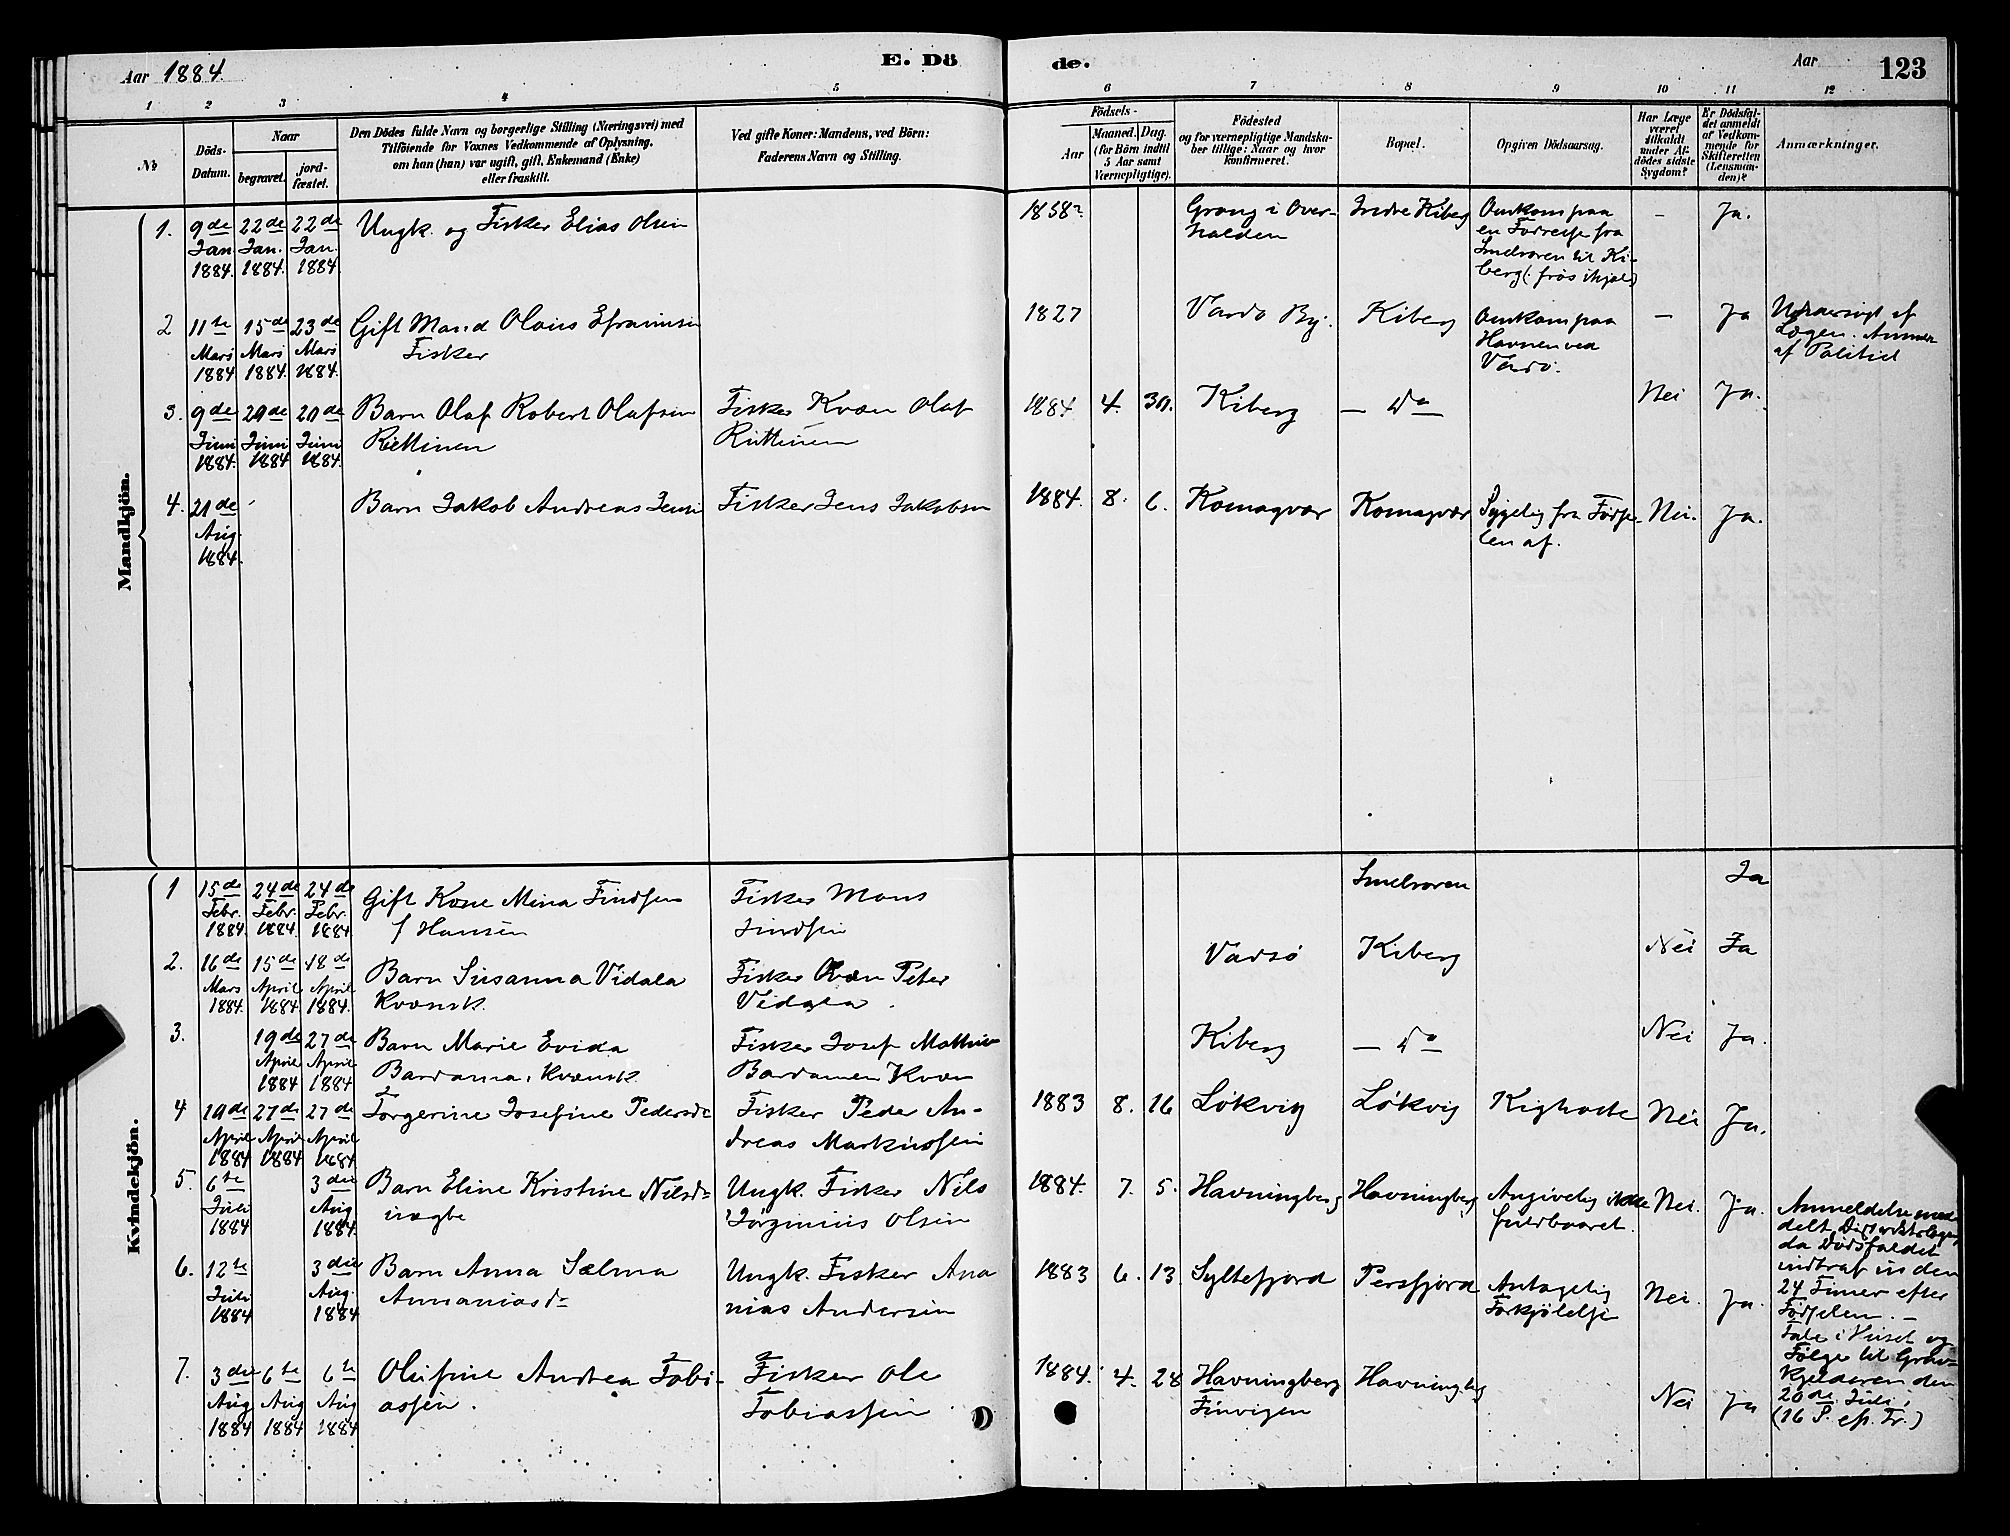 Aar 1884
E. Dö
de.
Aar
123
1
2
3
4
5
6
7
8
9
10
11
12
№
Döds-
Datum.
Naar
begravet.
jord-
fæstet.
Den Dödes fulde Navn og borgerlige Stilling (Næringsvei) med
Tilföiende for Voxnes Vedkommende af Oplysning,
om han (hun) var ugift, gift, Enkemand (Enke)
eller fraskilt.
Ved gifte Koner: Mandens, ved Börn:
Faderens Navn og Stilling.
Födsels-
Aar
Maaned.
Dag.
(for Börn indtil
5 Aar samt
Værnepligtige).
Födested
og for værnepligtige Mandska-
ber tillige: Naar og hvor
konfirmeret.
Bopæl.
Opgiven Dödsaarsag.
Har Læge
været
tilkaldt
under Af-
dödes sidste
Sygdom?
Er Dödsfal-
det anmeldt
af Vedkom-
mende for
Skifteretten
(Lensman-
den)?
Anmærkninger.
Mandkjön.
1.
9de
Jan.
1884.
22de
Jan.
1884.
22de
Jan.
1884.
Ungk. og Fisker Elias Olsen
1858?
Grong i Over-
halden
Indre Kiberg
Omkom paa
en Færreise fra
Smelroren til Ki-
berg (: frøs ihjel:)
–
Ja.
2
11te
Mars
1884
15de
Mars
1884.
23de
Mars
1884.
Gift Mand Olaus Efraimsen
Fisker
1827
Vardø By.
Kiberg
Omkom paa
Havnen ved
Vardø.
–
Ja
af
Lægen.
af Politiet
3.
9de
Juni
1884.
20de
Juni
1884
20de
Juni
1884.
Barn Olaf Robert Olafsen
Fisker Kvæn Olaf
1884
4.
30.
Kiberg
– Do –
Nei
Ja.
4.
21de
Aug.
1884.
Barn Jakob Andreas Jensen
Fisker Jens Jakobsen
1884.
8.
6.
Komagvær
Komagvær
Sygelig fra Fødse-
len af.
Nei.
Ja.
Kvindekjön.
1
15de
Febr.
1884.
24de
Febr.
1884.
24de
Febr.
1884
Gift Kone Mina Findsen
f Hansen
Fisker Mons
Findsen
Smelroren
Ja
2.
16de
Mars
1884.
15de
April
1884
18de
April
1884.
Barn Susanna Vidala
Kvænsk.
Fisker Kvæn Peter
Vidala.
Vadsø
Kiberg
Nei
Ja
3.
19de
April
1884
27de
April
1884
Barn Marie Evida
Bardama, Kvænsk.
Fisker Josef Mathis
Bardamen Kvæn
Kiberg
– Do –
Nei
Ja.
4
19de
April
1884
27de
April
1884
27de
April
1884
Torgerine Josefine Pedersd:
Fisker Peder An-
dreas Markussen
1883
8.
16
Løkvig
Løkvig
Kighoste
Nei
Ja.
5.
6te
Juli
1884
3die
Aug
1884.
Barn Eline Kristine Nilsd:
uægte
Ungk. Fisker Nils
Jørginius Olsen
1884.
7.
5.
Havningberg
Havningberg
Angivelig ikke
fuldbaaret.
Nei.
Ja.
Anmeldelse med-
delt Distriktslægen,
da Dødsfaldet
indtraf inden
24 Timer efter
Fødselen. –
6.
12te
Juli
1884
3die
Aug.
1884
Barn Anna Sælma
Annaniasd:
Ungk. Fisker Ana
nias Andersen
1883
6.
13.
Syltefjord
Persfjord
Antagelig
Forkjølelse
Nei.
Ja.
Tale i Huset og
Følge til Grav-
kjelderen den
20de Juli,
(16 S. ef. Tr.)
7.
3die
Aug
1884
6te
Aug
1884
6te
Aug
1884
Olufine Andrea Tobi-
assen.
Fisker Ole
Tobiassen
1884.
4.
28
Havningberg
Finvigen
Havningbg
Nei
Ja